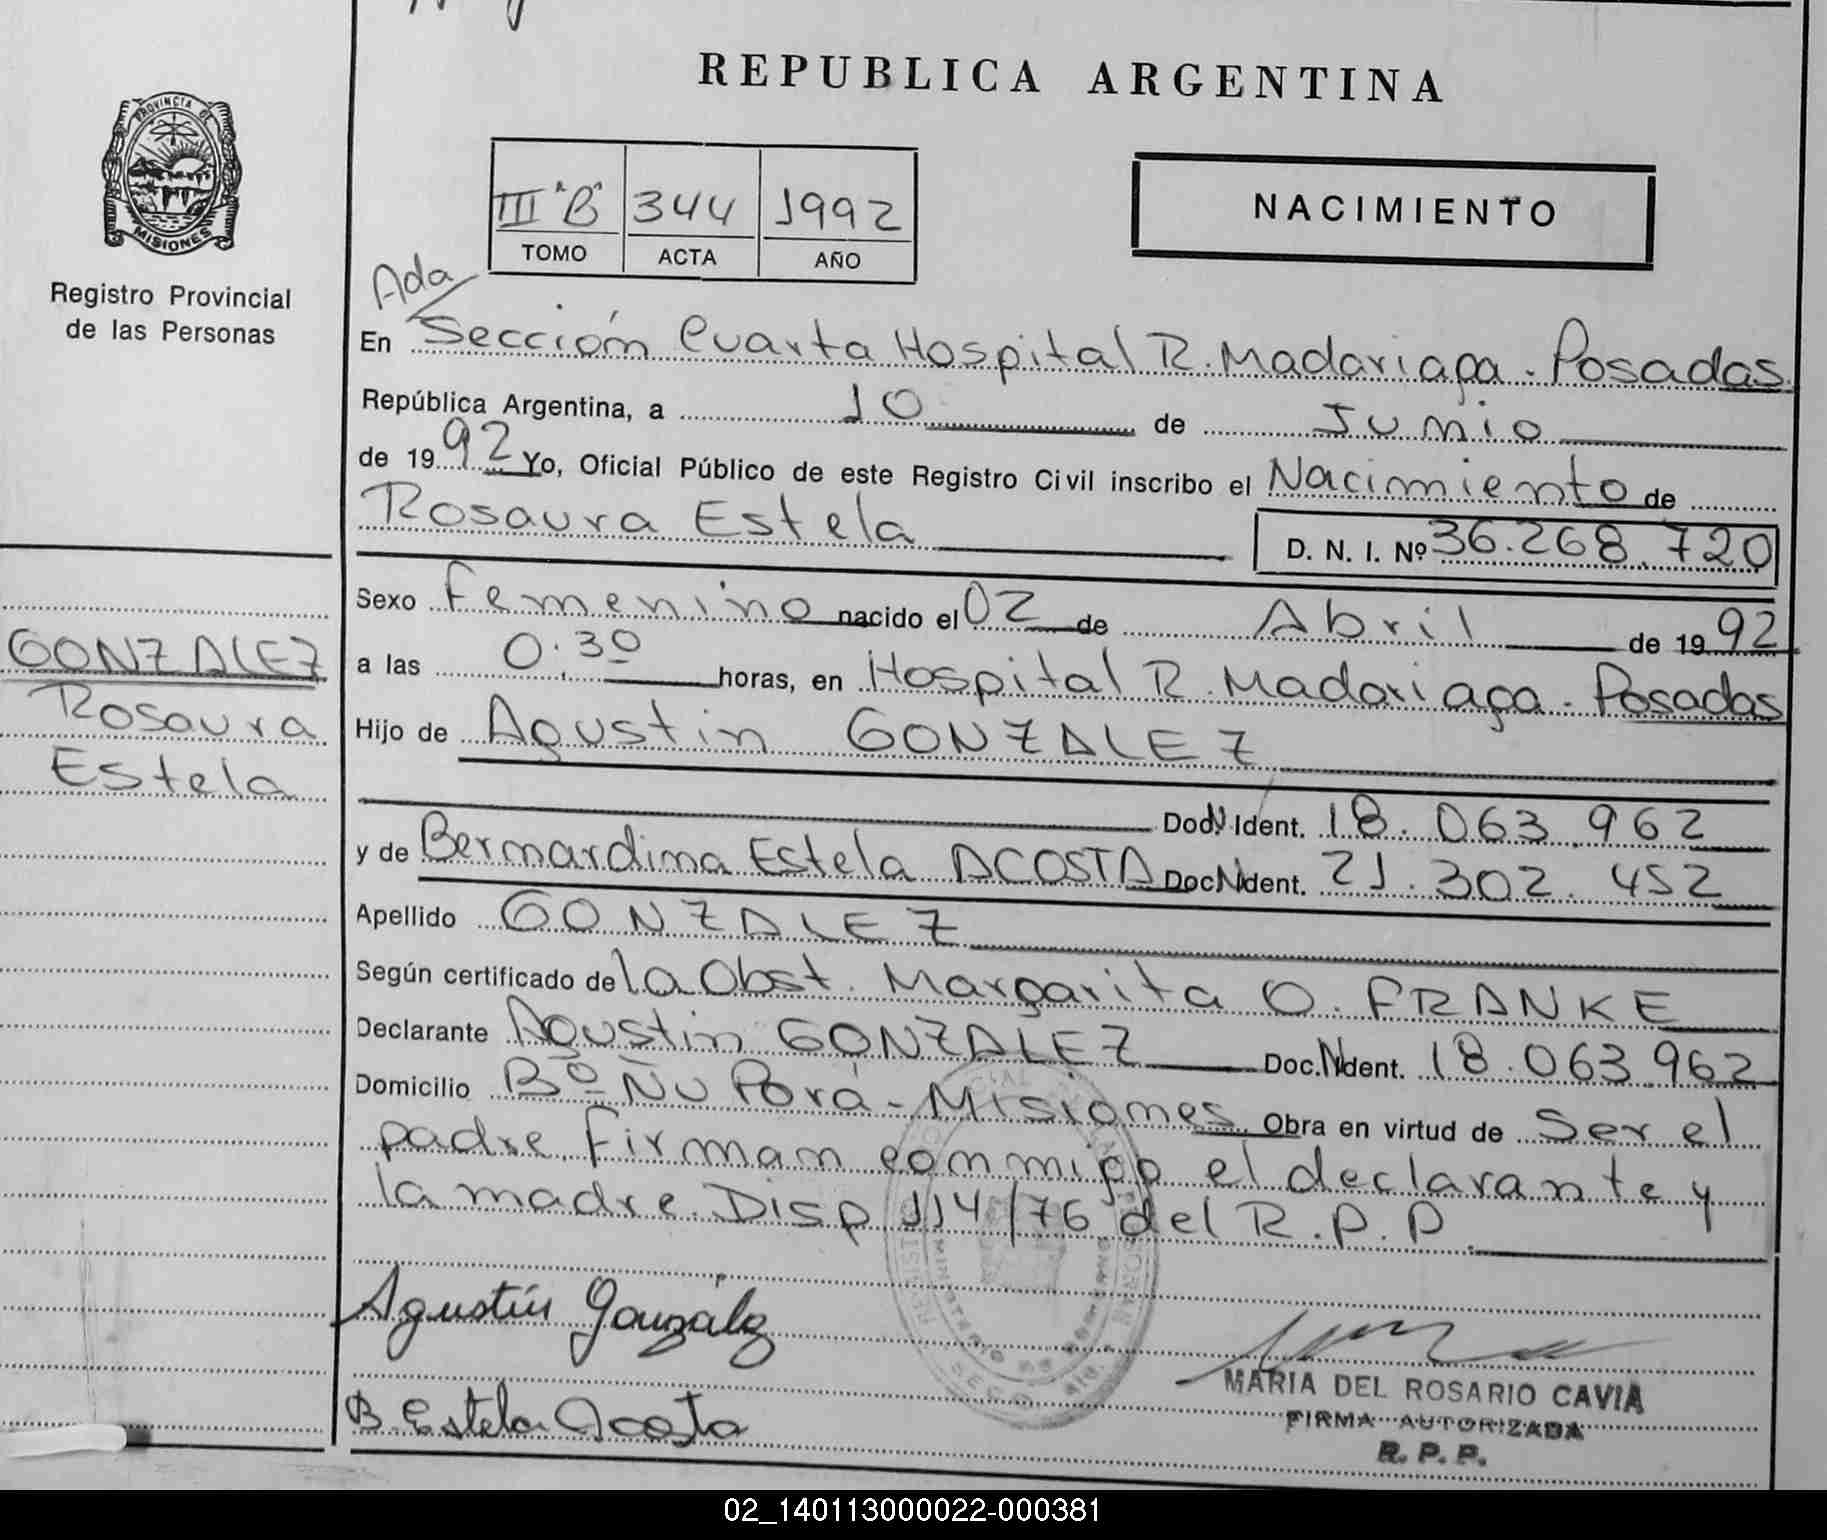 REPUBLICA ARGENTINA
PROVINCIA DE
MISIONES
Registro Provincial
de las Personas
III "B" 344 1992
TOMO ACTA AÑO
NACIMIENTO
Ada
En Sección Cuarta Hospital R. Madariaga. Posadas
República Argentina, a 10 de Junio
de 1992 Yo, Oficial Público de este Registro Civil inscribo el Nacimiento de
Rosaura Estela D. N. I. Nº 36.268.720
Sexo Femenino nacido el 02 de Abril de 1992
a las 0.30 horas, en Hospital R. Madariaga. Posadas
Hijo de Agustin GONZALEZ
Doc. N Ident. 18.063.962
y de Bernardina Estela ACOSTA Doc. N Ident. 21.302.452
Apellido GONZALEZ
Según certificado de la Obst. Margarita O. FRANKE
Declarante Agustin GONZALEZ Doc. N Ident. 18.063962
Domicilio Bº Ñu Porá - Misiones Obra en virtud de Ser el
padre. Firman conmigo el declarante y
la madre. Disp 114/76 del R.P.P.
GONZALEZ
Rosaura
Estela
Agustín González
B. Estela Acosta
MARIA DEL ROSARIO CAVIA
FIRMA AUTORIZADA
R. P. P.
02_140113000022-000381